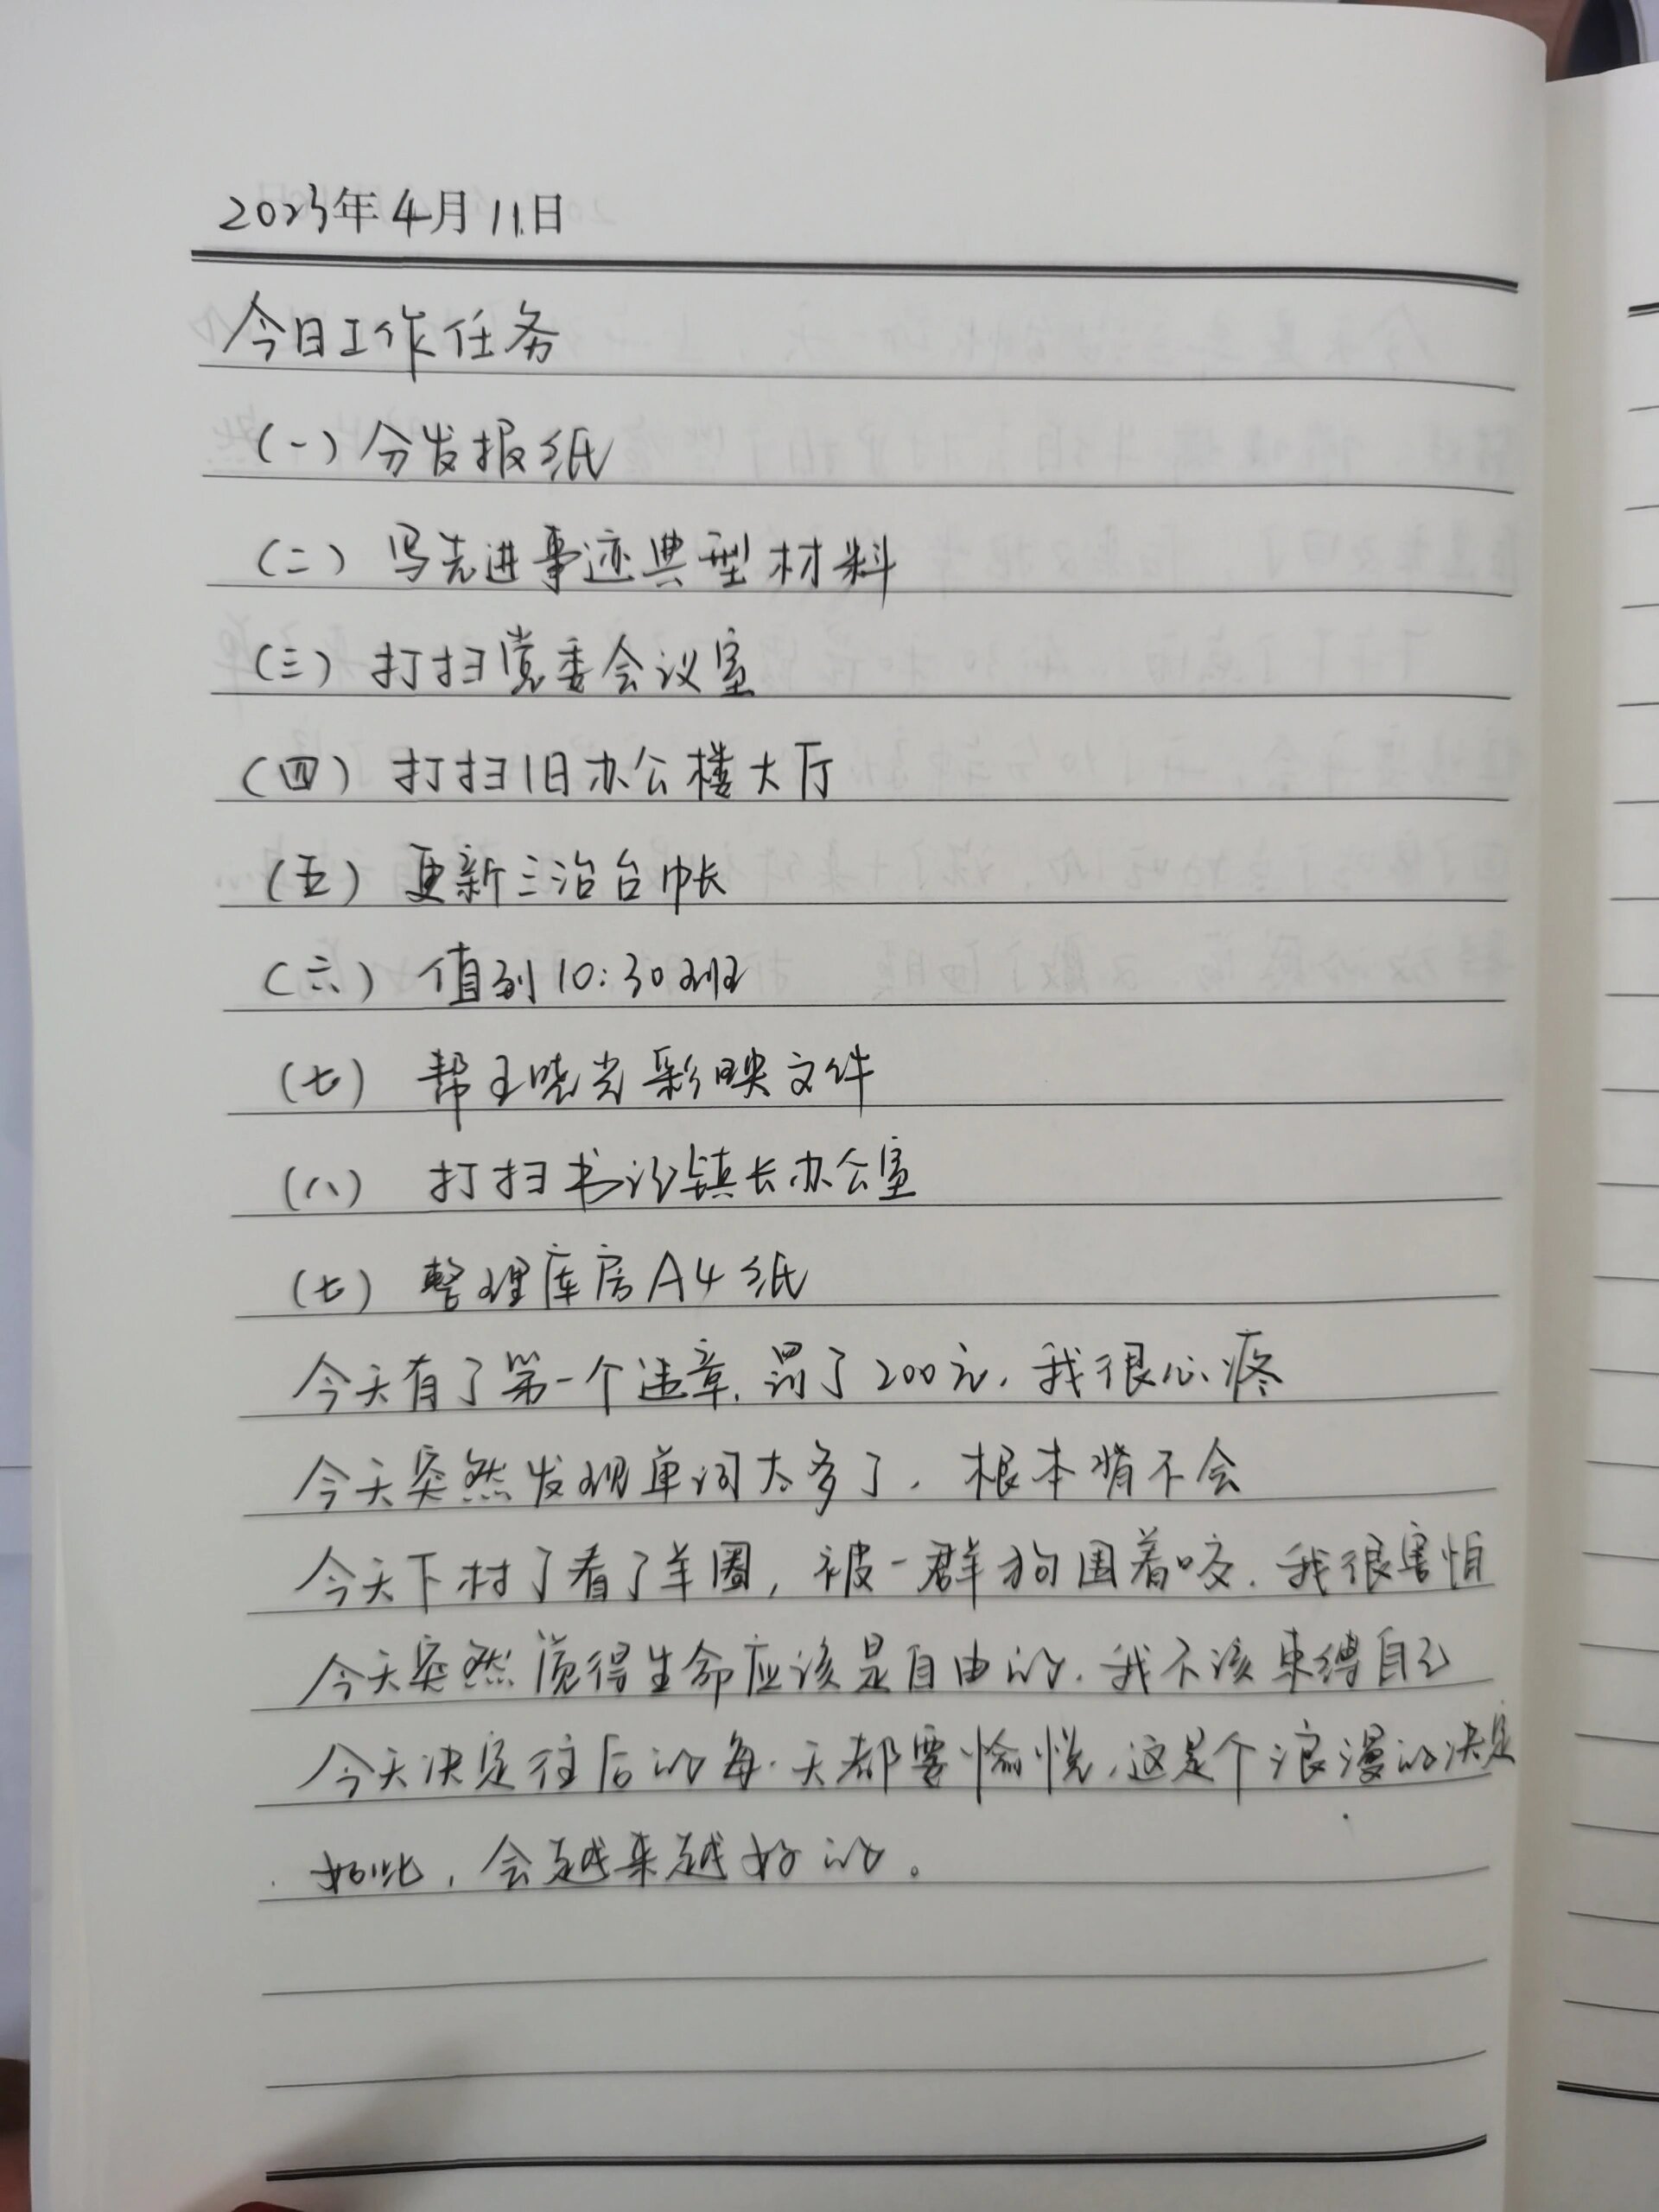 2023年4月11日
今日工作任务
(一)分发报纸
(二)写先进事迹典型材料
(三)打扫党委会议室
(四)打扫旧办公楼大厅
(五)更新三治台帐
(六)值到10:30班
(七)帮王晓光彩映文件
(八)打扫书记镇长办公室
(七)整理库房A4纸
今天有了第一个违章,罚了200元,我很心疼
今天突然发现单词太多了,根本背不会
今天下村了看了羊圈,被一群狗围着咬,我很害怕
今天突然觉得生命应该是自由的,我不该束缚自己
今天决定往后的每一天都要愉悦,这是个浪漫的决定
如此,会越来越好的。